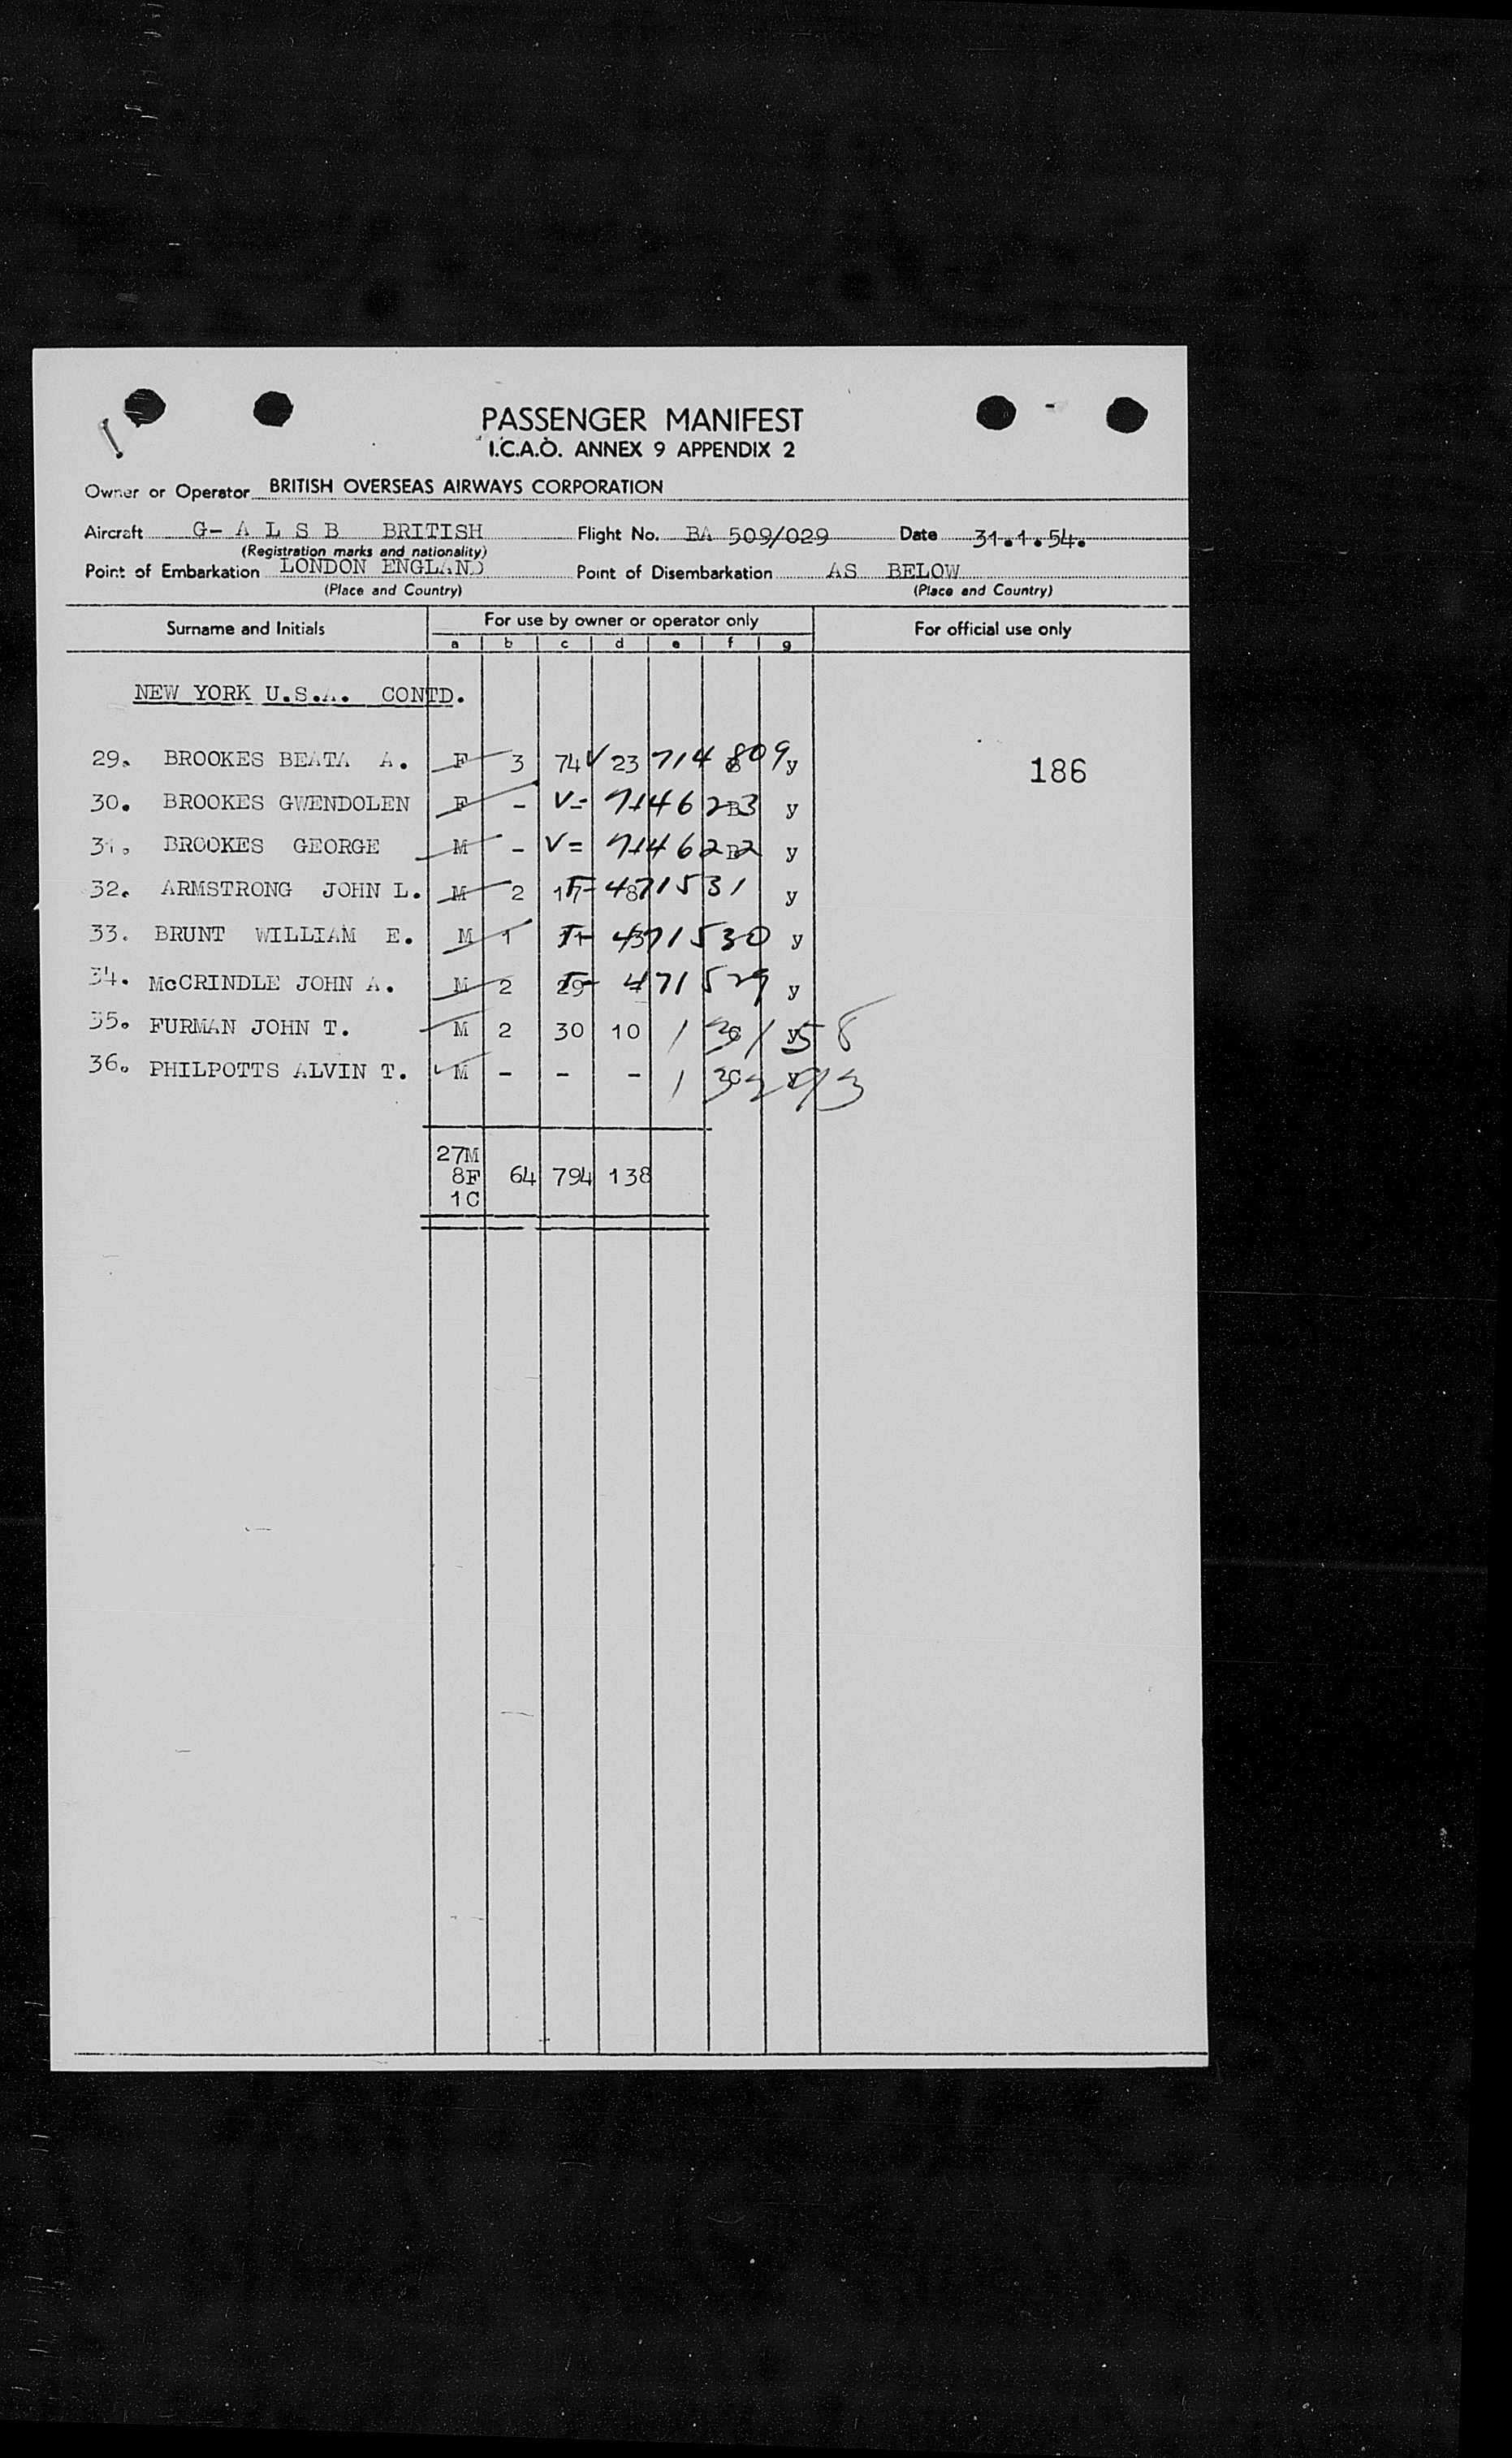 PASSENGER MANIFEST
I.C.A.O. ANNEX 9 APPENDIX 2
Owner or Operator BRITISH OVERSEAS AIRWAYS CORPORATION
Aircraft G- A L S B BRITISH Flight No. BA 509/029 Date 31.1.54.
(Registration marks and nationality)
Point of Embarkation LONDON ENGLAND Point of Disembarkation AS BELOW
(Place and Country) (Place and Country)
Surname and Initials For use by owner or operator only For official use only
a b c d e f g
NEW YORK U.S.A. CONTD.
29. BROOKES BEATA A. F 3 74 V 23 714 809 y
186
30. BROOKES GWENDOLEN F - V- 7146283 y
31. BROOKES GEORGE M - V= 7146282 y
32. ARMSTRONG JOHN L. M 2 17 T- 48 471531 y
33. BRUNT WILLIAM E. M 1 T- 471530 y
34. McCRINDLE JOHN A. M 2 29 T- 471529 y
35. FURMAN JOHN T. M 2 30 10 y
36. PHILPOTTS ALVIN T. M - - - y
27M
8F 64 794 138
1C